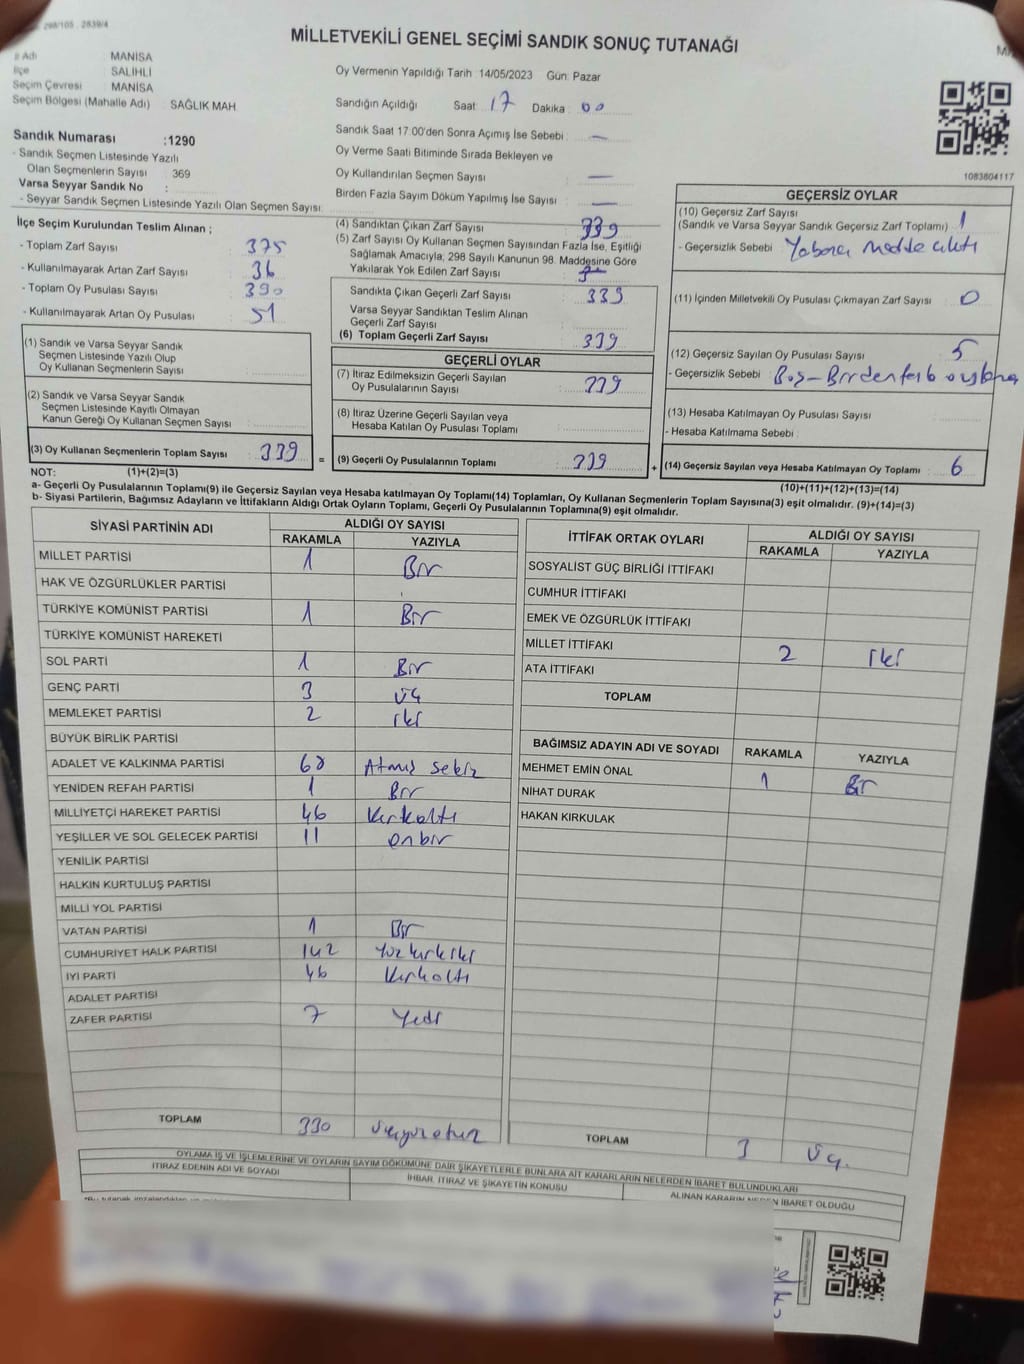 298/105 . 2839/4
MİLLETVEKİLİ GENEL SEÇİMİ SANDIK SONUÇ TUTANAĞI
İl Adı : MANİSA
İlçe : SALİHLİ
Seçim Çevresi : MANİSA
Seçim Bölgesi (Mahalle Adı) : SAĞLIK MAH
Sandık Numarası : 1290
- Sandık Seçmen Listesinde Yazılı
Olan Seçmenlerin Sayısı : 369
Varsa Seyyar Sandık No :
- Seyyar Sandık Seçmen Listesinde Yazılı Olan Seçmen Sayısı:
Oy Vermenin Yapıldığı Tarih 14/05/2023 Gün: Pazar
Sandığın Açıldığı Saat: 17 Dakika : 00
Sandık Saat 17:00'den Sonra Açmış İse Sebebi : —
Oy Verme Saati Bitiminde Sırada Bekleyen ve
Oy Kullandırılan Seçmen Sayısı : —
Birden Fazla Sayım Döküm Yapılmış İse Sayısı : —
1083804117
İlçe Seçim Kurulundan Teslim Alınan ;
- Toplam Zarf Sayısı : 375
- Kullanılmayarak Artan Zarf Sayısı : 36
- Toplam Oy Pusulası Sayısı : 390
- Kullanılmayarak Artan Oy Pusulası : 51
(1) Sandık ve Varsa Seyyar Sandık
Seçmen Listesinde Yazılı Olup
Oy Kullanan Seçmenlerin Sayısı :
(2) Sandık ve Varsa Seyyar Sandık
Seçmen Listesinde Kayıtlı Olmayan
Kanun Gereği Oy Kullanan Seçmen Sayısı :
(3) Oy Kullanan Seçmenlerin Toplam Sayısı : 339
(4) Sandıktan Çıkan Zarf Sayısı : 339
(5) Zarf Sayısı Oy Kullanan Seçmen Sayısından Fazla İse, Eşitliği
Sağlamak Amacıyla, 298 Sayılı Kanunun 98. Maddesine Göre
Yakılarak Yok Edilen Zarf Sayısı :
Sandıkta Çıkan Geçerli Zarf Sayısı : 339
Varsa Seyyar Sandıktan Teslim Alınan
Geçerli Zarf Sayısı :
(6) Toplam Geçerli Zarf Sayısı : 339
GEÇERLİ OYLAR
(7) İtiraz Edilmeksizin Geçerli Sayılan
Oy Pusulalarının Sayısı : 339
(8) İtiraz Üzerine Geçerli Sayılan veya
Hesaba Katılan Oy Pusulası Toplamı :
= (9) Geçerli Oy Pusulalarının Toplamı : 339 +
GEÇERSİZ OYLAR
(10) Geçersiz Zarf Sayısı
(Sandık ve Varsa Seyyar Sandık Geçersiz Zarf Toplamı) : 1
- Geçersizlik Sebebi : Yabancı Madde çıktı
(11) İçinden Milletvekili Oy Pusulası Çıkmayan Zarf Sayısı : 0
(12) Geçersiz Sayılan Oy Pusulası Sayısı : 5
- Geçersizlik Sebebi : Boş-Birden
(13) Hesaba Katılmayan Oy Pusulası Sayısı :
- Hesaba Katılmama Sebebi :
(14) Geçersiz Sayılan veya Hesaba Katılmayan Oy Toplamı : 6
NOT: (1)+(2)=(3)
(10)+(11)+(12)+(13)=(14)
a- Geçerli Oy Pusulalarının Toplamı(9) ile Geçersiz Sayılan veya Hesaba katılmayan Oy Toplamı(14) Toplamları, Oy Kullanan Seçmenlerin Toplam Sayısına(3) eşit olmalıdır. (9)+(14)=(3)
b- Siyasi Partilerin, Bağımsız Adayların ve İttifakların Aldığı Ortak Oyların Toplamı, Geçerli Oy Pusulalarının Toplamına(9) eşit olmalıdır.
SİYASİ PARTİNİN ADI ALDIĞI OY SAYISI
RAKAMLA YAZIYLA
MİLLET PARTİSİ 1 Bir
HAK VE ÖZGÜRLÜKLER PARTİSİ
TÜRKİYE KOMÜNİST PARTİSİ 1 Bir
TÜRKİYE KOMÜNİST HAREKETİ
SOL PARTİ 1 Bir
GENÇ PARTİ 3 üç
MEMLEKET PARTİSİ 2 iki
BÜYÜK BİRLİK PARTİSİ
ADALET VE KALKINMA PARTİSİ 68 Atmış sekiz
YENİDEN REFAH PARTİSİ 1 Bir
MİLLİYETÇİ HAREKET PARTİSİ 46 kırkaltı
YEŞİLLER VE SOL GELECEK PARTİSİ 11 onbir
YENİLİK PARTİSİ
HALKIN KURTULUŞ PARTİSİ
MİLLİ YOL PARTİSİ
VATAN PARTİSİ 1 Bir
CUMHURİYET HALK PARTİSİ 142 Yüzkırkiki
İYİ PARTİ 46 kırkaltı
ADALET PARTİSİ
ZAFER PARTİSİ 7 Yedi
TOPLAM 330 üçyüzotuz
İTTİFAK ORTAK OYLARI ALDIĞI OY SAYISI
RAKAMLA YAZIYLA
SOSYALİST GÜÇ BİRLİĞİ İTTİFAKI
CUMHUR İTTİFAKI
EMEK VE ÖZGÜRLÜK İTTİFAKI
MİLLET İTTİFAKI 2 iki
ATA İTTİFAKI
TOPLAM
BAĞIMSIZ ADAYIN ADI VE SOYADI RAKAMLA YAZIYLA
MEHMET EMİN ÖNAL 1 Bir
NİHAT DURAK
HAKAN KIRKULAK
TOPLAM 3 üç.
OYLAMA İŞ VE İŞLEMLERİNE VE OYLARIN SAYIM DÖKÜMÜNE DAİR ŞİKAYETLERLE BUNLARA AİT KARARLARIN NELERDEN İBARET BULUNDUKLARI
İTİRAZ EDENİN ADI VE SOYADI İHBAR, İTİRAZ VE ŞİKAYETİN KONUSU ALINAN KARARIN NEDEN İBARET OLDUĞU